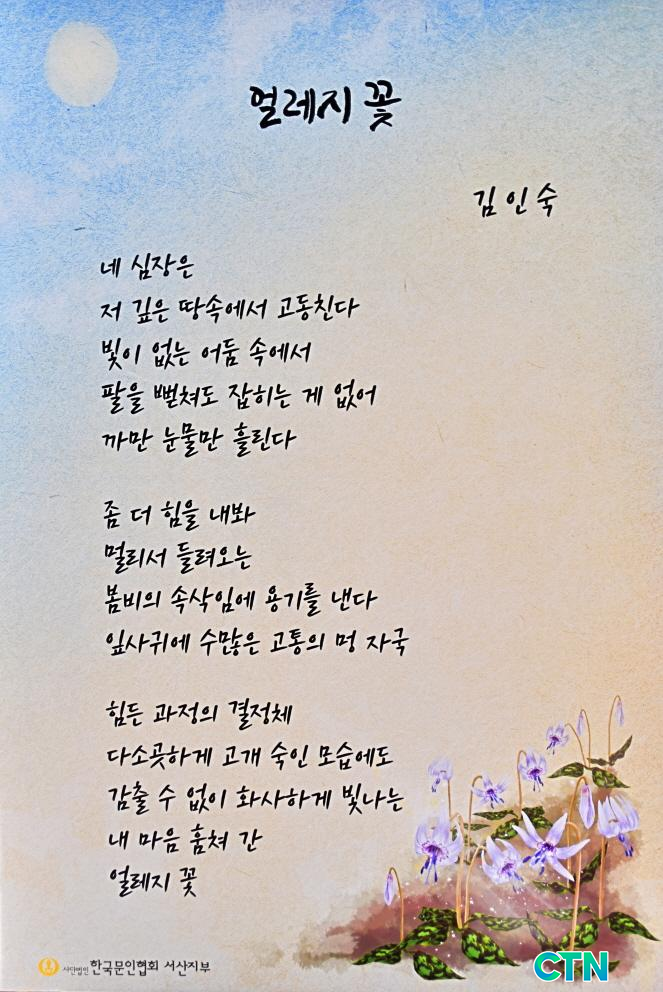 얼레지 꽃
김인숙
네 심장은
저 깊은 땅속에서 고동친다
빛이 없는 어둠 속에서
팔을 뻗쳐도 잡히는 게 없어
까만 눈물만 흘린다
좀 더 힘을 내봐
멀리서 들려오는
봄비의 속삭임에 용기를 낸다
잎사귀에 수많은 고통의 멍 자국
힘든 과정의 결정체
다소곳하게 고개 숙인 모습에도
감출 수 없이 화사하게 빛나는
내 마음 훔쳐 간
얼레지 꽃
사단법인 한국문인협회 서산지부
CTN